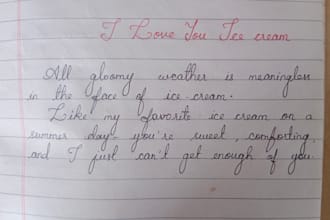 I Love You Ice cream
All gloomy weather is meaningless
in the face of ice-cream.
Like my favorite ice cream on a
summer day- you're sweet, comforting,
and I just can't get enough of you.